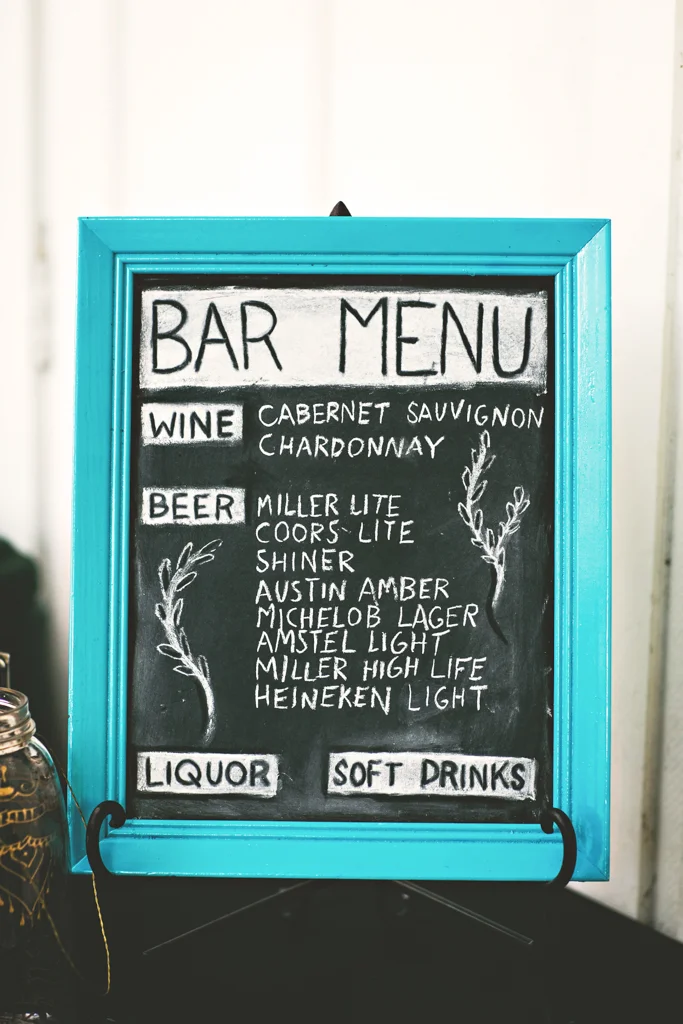 BAR MENU
WINE CABERNET SAUVIGNON
CHARDONNAY
BEER MILLER LITE
COORS LITE
SHINER
AUSTIN AMBER
MICHELOB LAGER
AMSTEL LIGHT
MILLER HIGH LIFE
HEINEKEN LIGHT
LIQUOR SOFT DRINKS